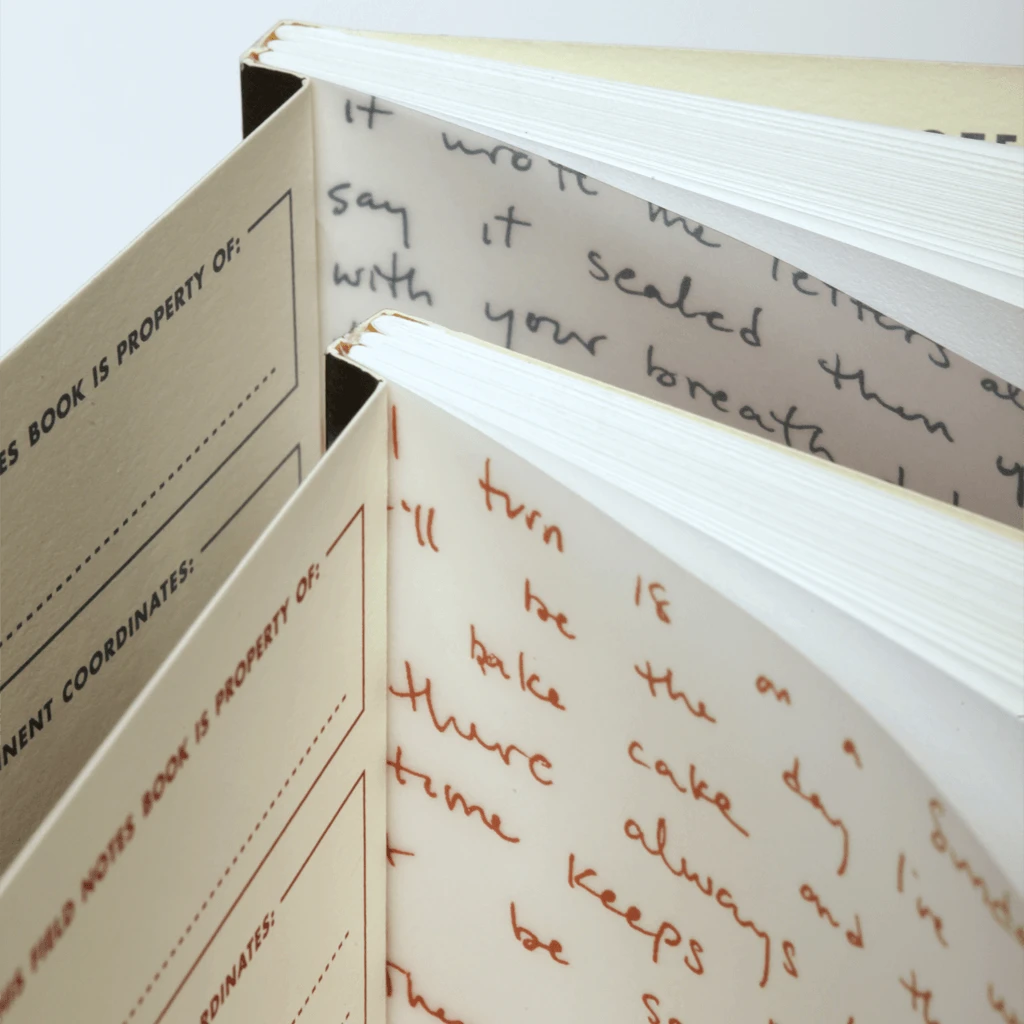 ES BOOK IS PROPERTY OF:
NENT COORDINATES:
it wrote me letters
say it sealed then
with your breath
HIS FIELD NOTES BOOK IS PROPERTY OF:
RDINATES:
I turn 18 on a Sunda
'll be the day I've
bake cake and th
there always
time keeps
be